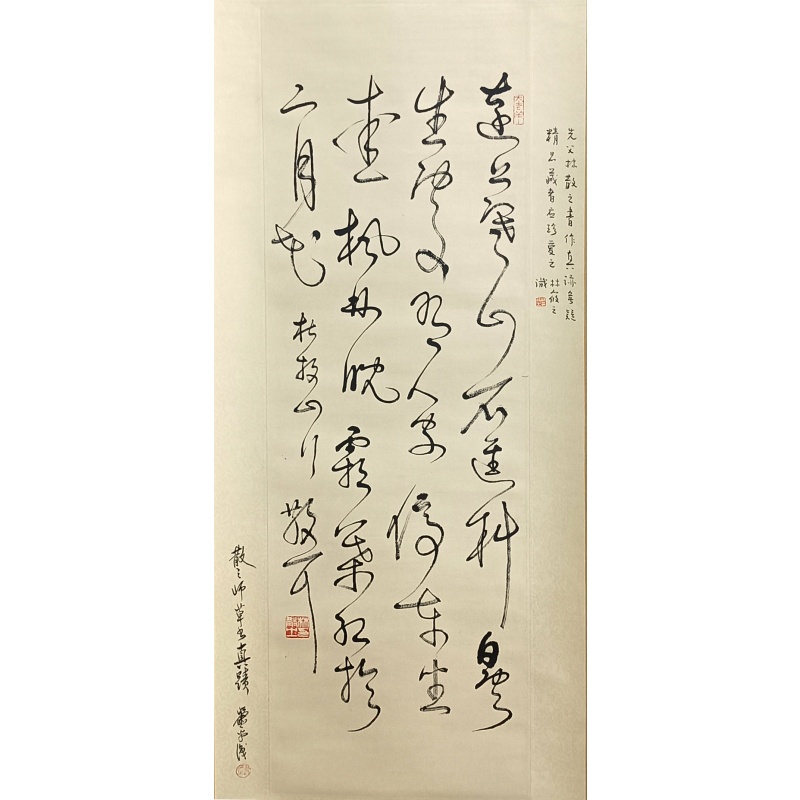 先父林散之書作真迹無疑
精品藏者应珍愛之 林筱之
識
遠上寒山石逕斜 白雲
生處有人家 停車坐
愛楓林晚 霜葉紅於
二月花 杜牧山行 散耳
散之師草書真蹟